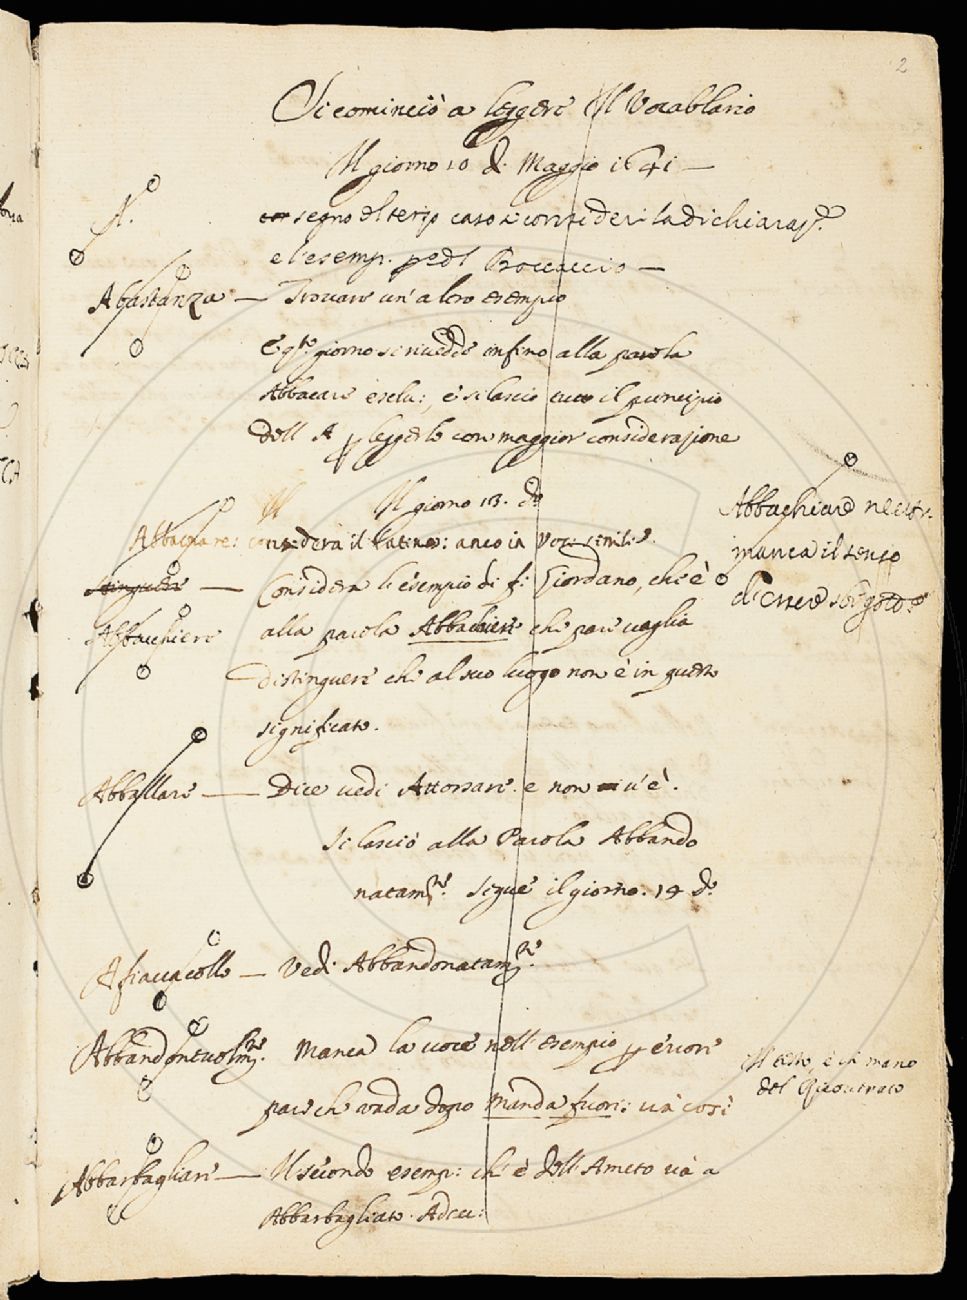 2
Si cominciò a leggere Il Vocablario
Il giorno 10 di Maggio 1641 —
A.
segno del terzo caso si consideri la dichiaraz.ne
e l'esemp. pe dl Boccaccio —
Abastanza — Trovare un'altro esempio
E q.to giorno si rivedde infino alla parola
Abbacare esclu: e si lascio tutto il principio
dell A p leggerlo con maggior considerazione
Il giorno 13. d.o
Abbacinare: considera il latino: anco in voci simili.
Abbachiare nell'estr.
manca il senso
di
Distinguere — Considera l'esempio di f: Giordano, che è
Abbachiere alla parola Abbachiere che pare vaglia
Distinguere che al suo luogo non è in questo
significato.
Abballare — Dice vedi Attorsare e non v'è.
Si lasciò alla Parola Abbando
natam.te. Segue il giorno. 14 d.o
A fiaccacollo — Vedi Abbandonatam.te
Abbandonevolm.te. Manca la voce nell'esempio p errore
pare che vada dopo Manda fuori: và così
Il testo, è di mano
del
Abbarbagliare — Il secondo esemp: ch'è dell'Ameto và a
Abbarbagliato. Adcu: